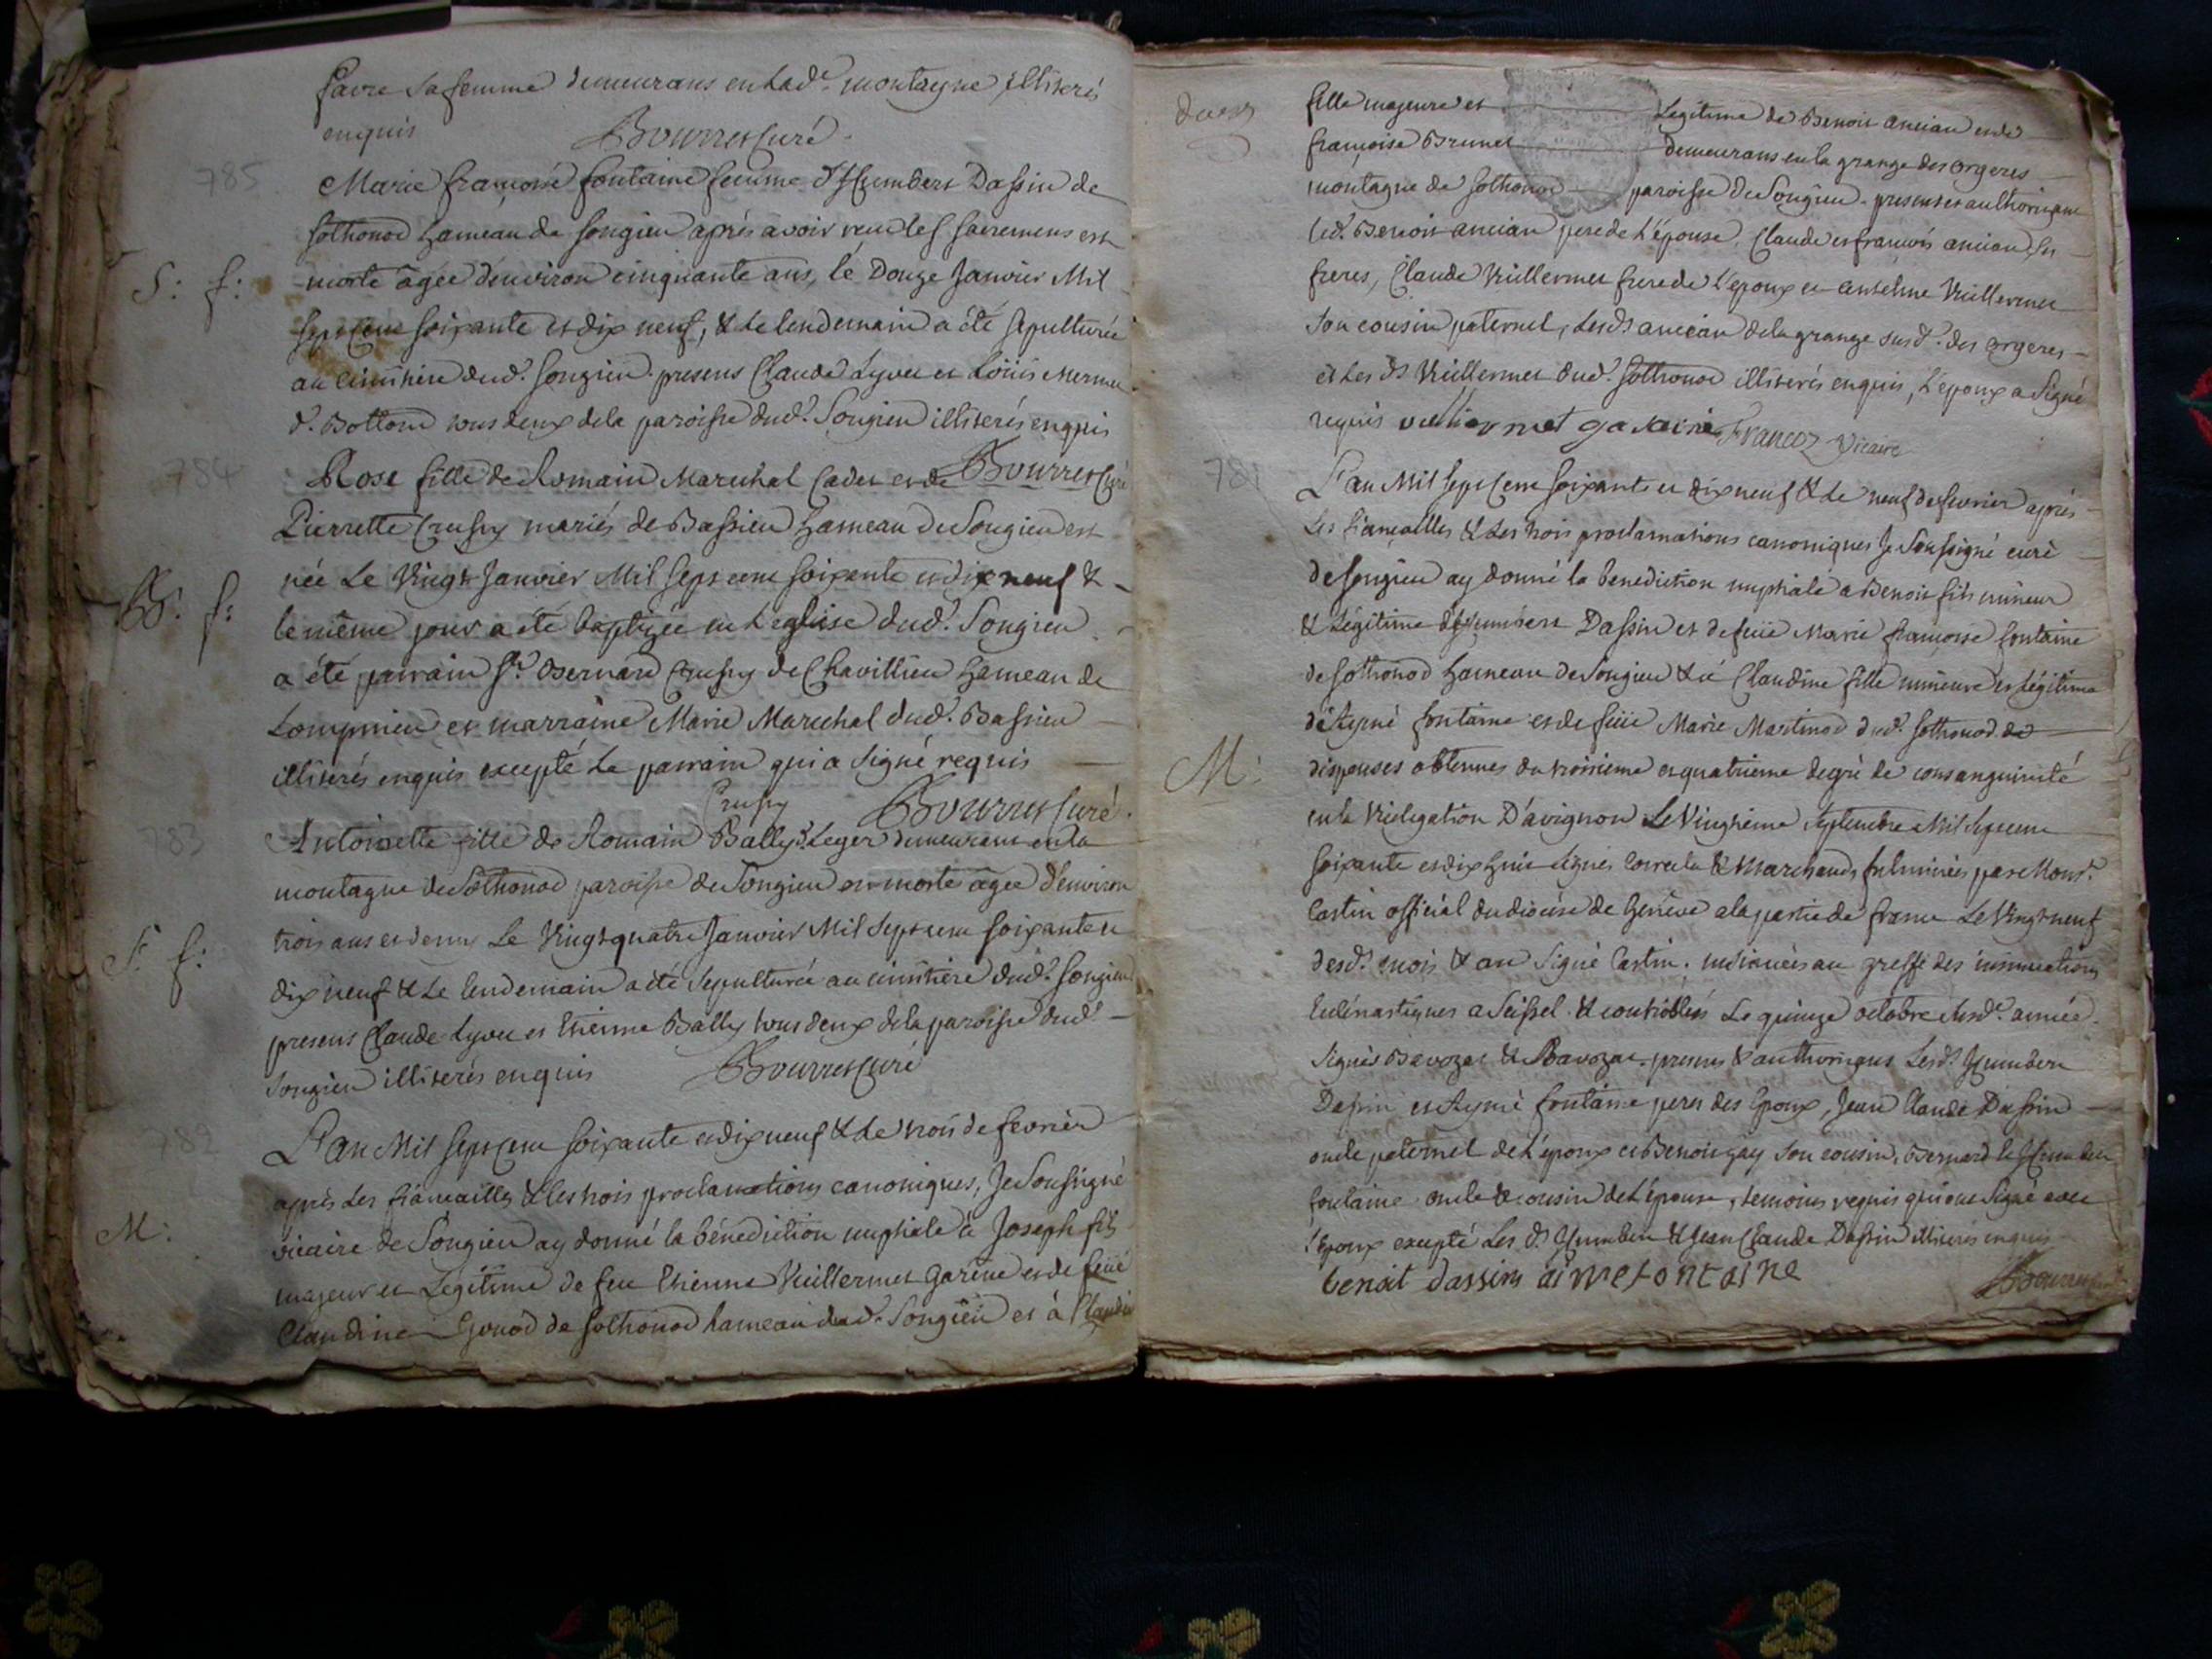 favre Sa femme demeurans en lad.e montagne illiterés
enquis Bourret Curé.
785
Marie françoise fontaine femme d'Humbert Dassin de
Sothonod hameau de Songieu après avoir recu les sacremens est
S: f: morte âgée d'environ cinquante ans, le Douze Janvier Mil
Sept Cent soixante et dix neuf, & le lendemain a été sepulturée
au Cimitière dud. Songieu. presens Claude Lyvet et Loüis Mermet
d. Bottom tous deux de la paroisse dud. Songieu illiterés enquis
Bourret Curé
784
Rose fille de Romain Marechal Cadet et de
Pierrette Crussy mariés de Bassieu hameau de Songieu est
née Le Vingt Janvier Mil Sept cent soixante et dix neuf &
B: f: le même jour a été baptizée en L'eglise dud. Songieu
a été parrain Sr. Bernard Crussy de Chavillieu hameau de
Lompnieu et marraine Marie Marechal dud. Bassieu
illiterés enquis excepté Le parrain qui a signé requis
Crussy Bourret Curé.
783
Antoinette fille de Romain Bally Leger demeurant en la
montagne de Sothonod paroisse de Songieu est morte âgée d'environ
S: f: trois ans et demy Le Vingt quatre Janvier Mil Sept cent soixante et
dix neuf & Le lendemain a été Sepulturée au cimitière dud. Songieu
presens Claude Lyvet et Etienne Bally tous deux de la paroisse dud.
Songieu illiterés enquis Bourret Curé
782
L'an Mil Sept Cent soixante et dix neuf & Le trois de fevrier
après Les fiancailles & les trois proclamations canoniques, Je Soussigné
M: vicaire de Songieu ay donné la bénédiction nuptiale à Joseph fils
majeur et Legitime de feu Etienne Vuillermet Garine et de feüe
Claudine Gonod de Sothonod hameau dud. Songieu et à Claudine
fille majeure et Legitime de Benoit ancian et de
françoise Brunet demeurans en la grange des orgeres
montagne de Sothonod paroisse de Songieu. presens et authorisans
led. Benoit ancian pere de L'épouse, Claude et françois ancian ses
freres, Claude Vuillermet frere de L'epoux et antelme Vuillermet
Son cousin paternel, Lesd. ancian de la grange susd. des orgeres
et Les d. Vuillermet dud. Sothonod illiterés enquis, L'époux a Signé
requis vulliermet garine Francoz Vicaire
781
L'an Mil Sept Cent soixante et dix neuf & Le neuf de fevrier après
Les fiancailles & Les trois proclamations canoniques Je Soussigné curé
de Songieu ay donné la benediction nuptiale a Benoit fils mineur
& Légitime d'humbert Dassin et de feüe Marie françoise fontaine
de Sothonod hameau de Songieu & à Claudine fille mineure et légitime
d'Aymé fontaine et de feüe Marie Martinod dud. Sothonod
M: dispenses obtenues du troisieme et quatrieme degré de consanguinité
en la Vicelegation D'avignon Le Vingtieme Septembre Mil Sept cent
soixante et dix huit signés & Marchand, fulminées par Mons.r
Castin official du diocèse de Genève a la partie de france Le Vingt neuf
desd. mois & an Signé Castin. insinuées au greffe des insinuations
Ecclésiastiques a Seissel & controllées Le quinze octobre susd.e année
presens & authorisans Lesd. Humbert
Dassin et Aymé fontaine peres des Epoux, Jean Claude Dassin
oncle paternel de L'époux et Benoit gay Son cousin, Bernard & Humbert
fontaine oncle & cousin de L'épouse, temoins requis qui ont Signé avec
l'Epoux excepté Les d. Humbert & Jean Claude Dassin illiterés enquis
benoit dassin aime fontaine Bourret